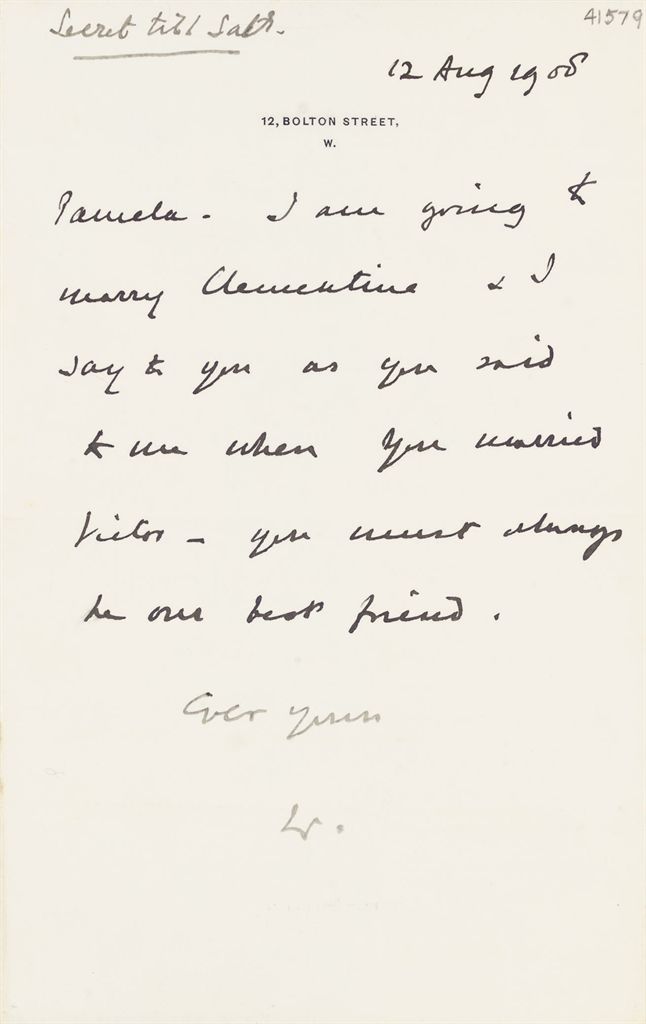 Secret till Satr.
41579
12 Aug 1908
12, BOLTON STREET,
W.
Pamela - I am going to
marry Clementine & I
say to you as you said
to me when you married
Victor - you must always
be our best friend.
Ever yours
W.